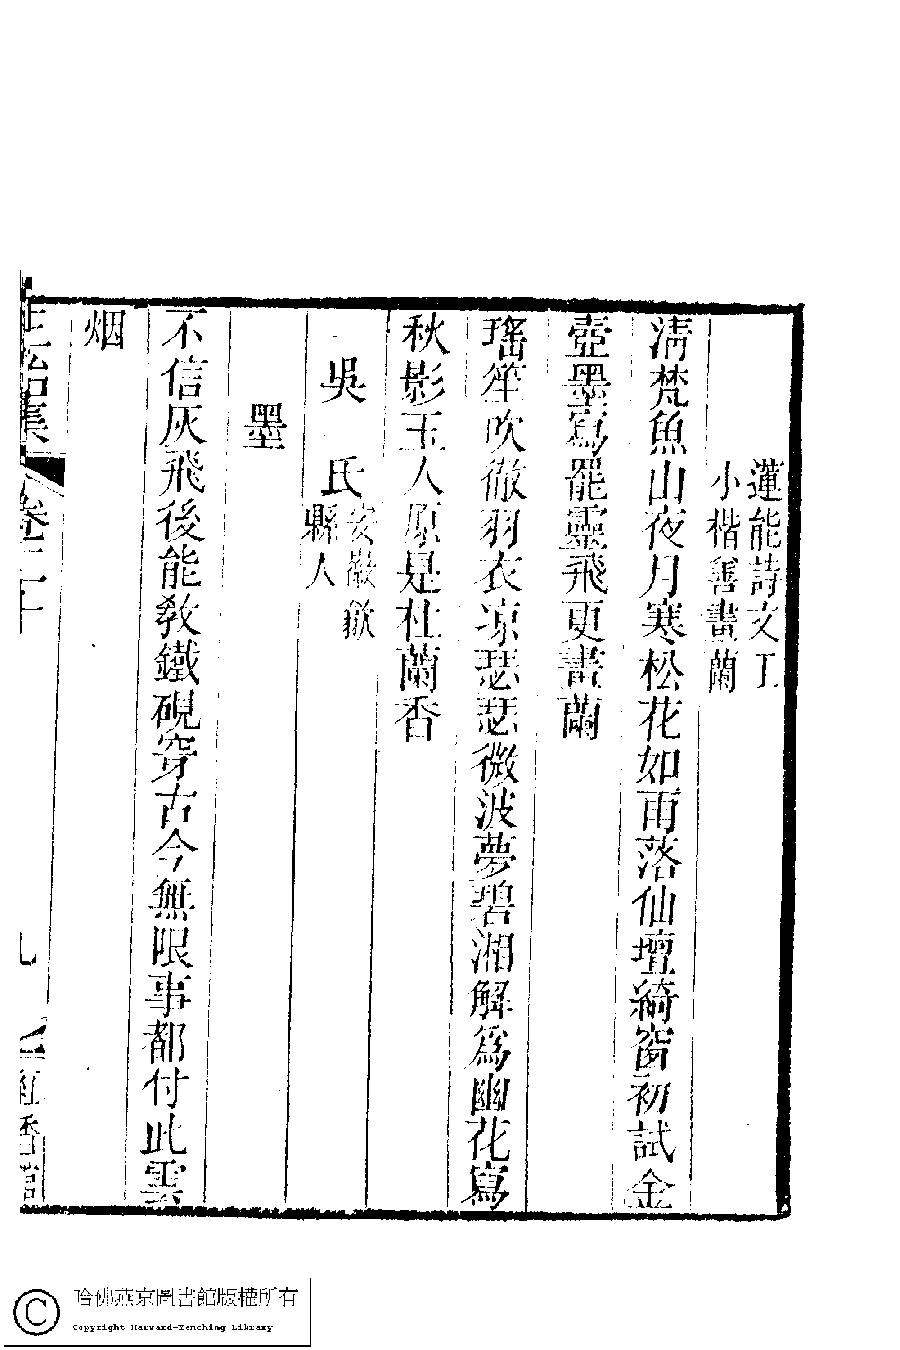 蓮能詩文工
小楷善畫蘭
淸梵魚山夜月寒松花如雨落仙壇綺窗初試金
壺墨寫罷靈飛更畫蘭
瑤笙吹徹羽衣凉瑟瑟微波夢碧湘解爲幽花寫
秋影玉人原是杜蘭香
吳氏
安徽歙
縣人
墨
不信灰飛後能敎鐵硯穿古今無限事都付此雲
烟
正始集
卷二十
紅香館
哈佛燕京圖書館版權所有
Copyright Harvard-Yenching Library